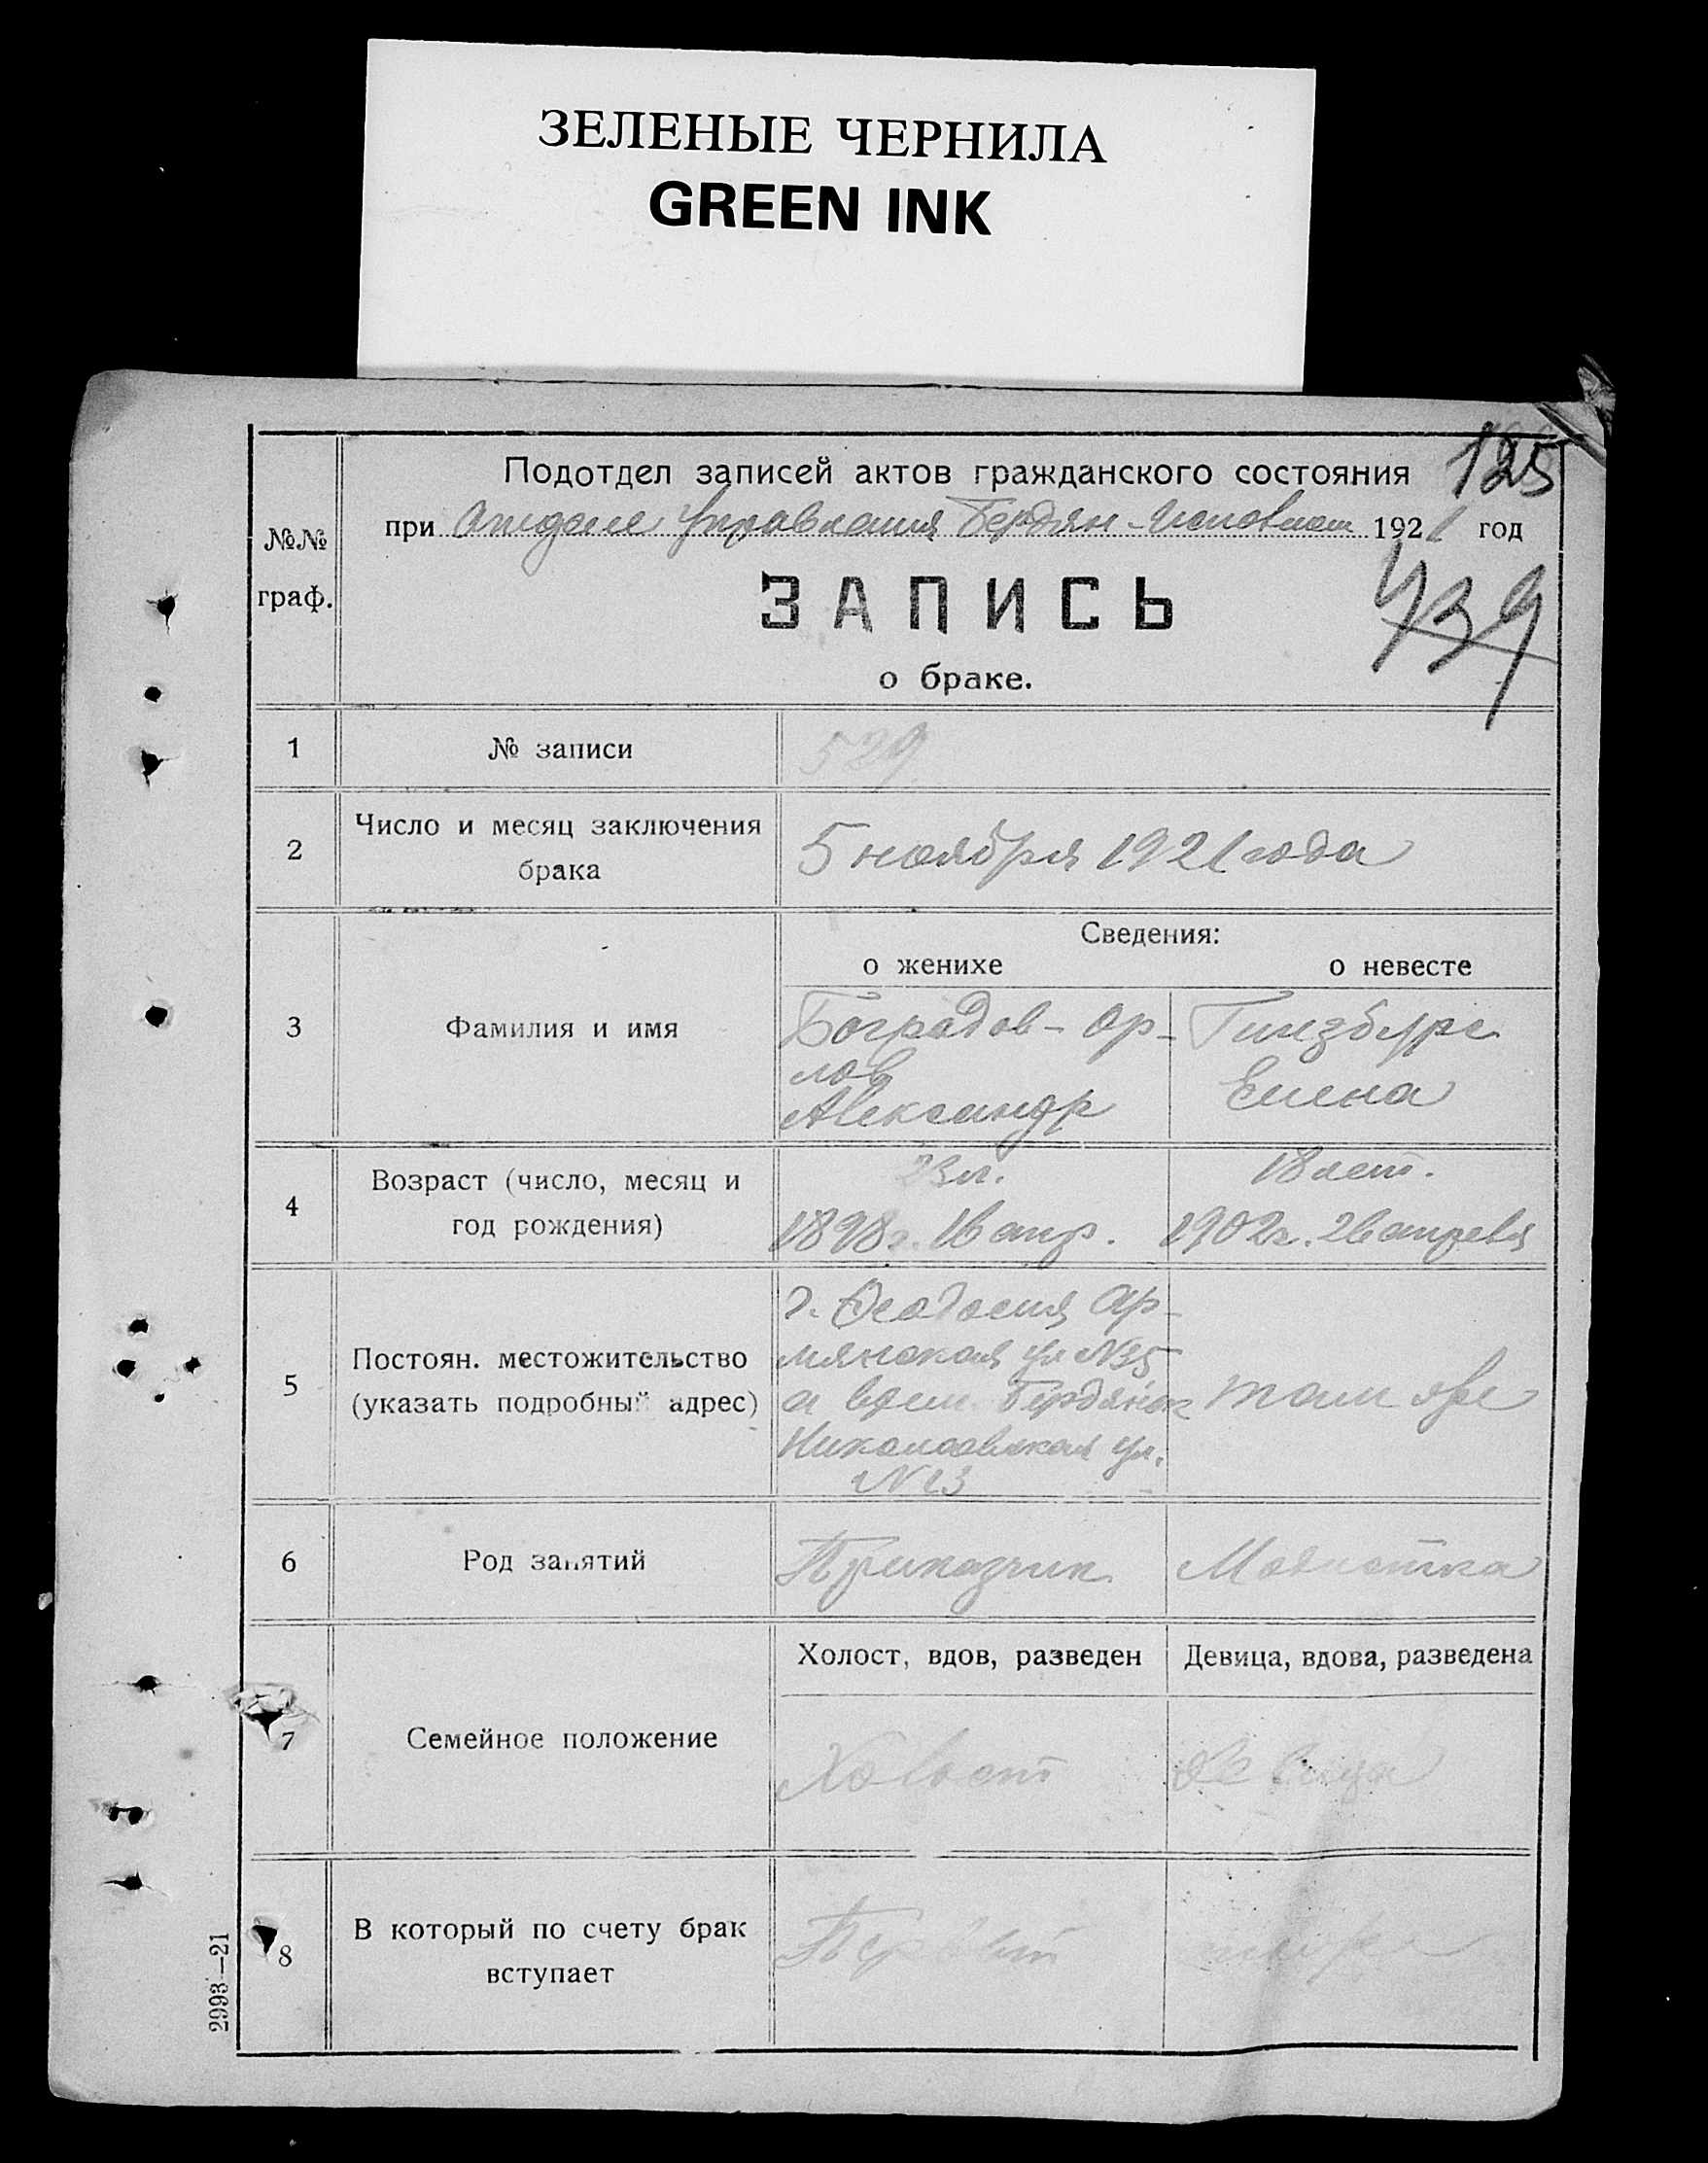 ЗЕЛЕНЫЕ ЧЕРНИЛА
GREEN INK
125
Подотдел записей актов гражданского состояния
при Отделе Управления Бердян- 1921 год
№№ граф.
ЗАПИСЬ
439
о браке.
1 № записи 529
2 Число и месяц заключения брака 5 ноября 1921 года
Сведения:
о женихе о невесте
3 Фамилия и имя
Боградов-Ор- Гинзбург
лов Елена
Александр
4 Возраст (число, месяц и год рождения)
23 л. 18 лет.
1898 г. 16 апр. 1902 г. 26 апреля
5 Постоян. местожительство (указать подробный адрес)
г. Феодосия Ар-
мянская ул №35
а Бердянск там же
Николаевская ул.
№13
6 Род занятий Приказчик Модистка
Холост, вдов, разведен Девица, вдова, разведена
7 Семейное положение Холост девица
8 В который по счету брак вступает Первый
2993—21